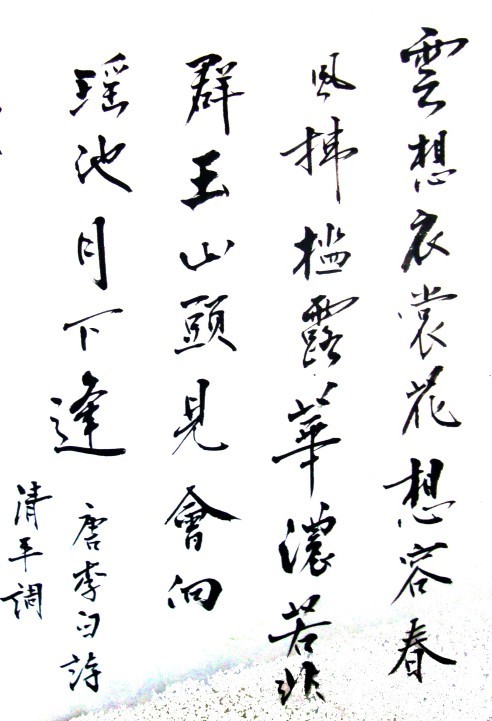 雲想衣裳花想容春
風拂檻露華濃若非
群玉山頭見會向
瑤池月下逢
唐李白詩
清平調